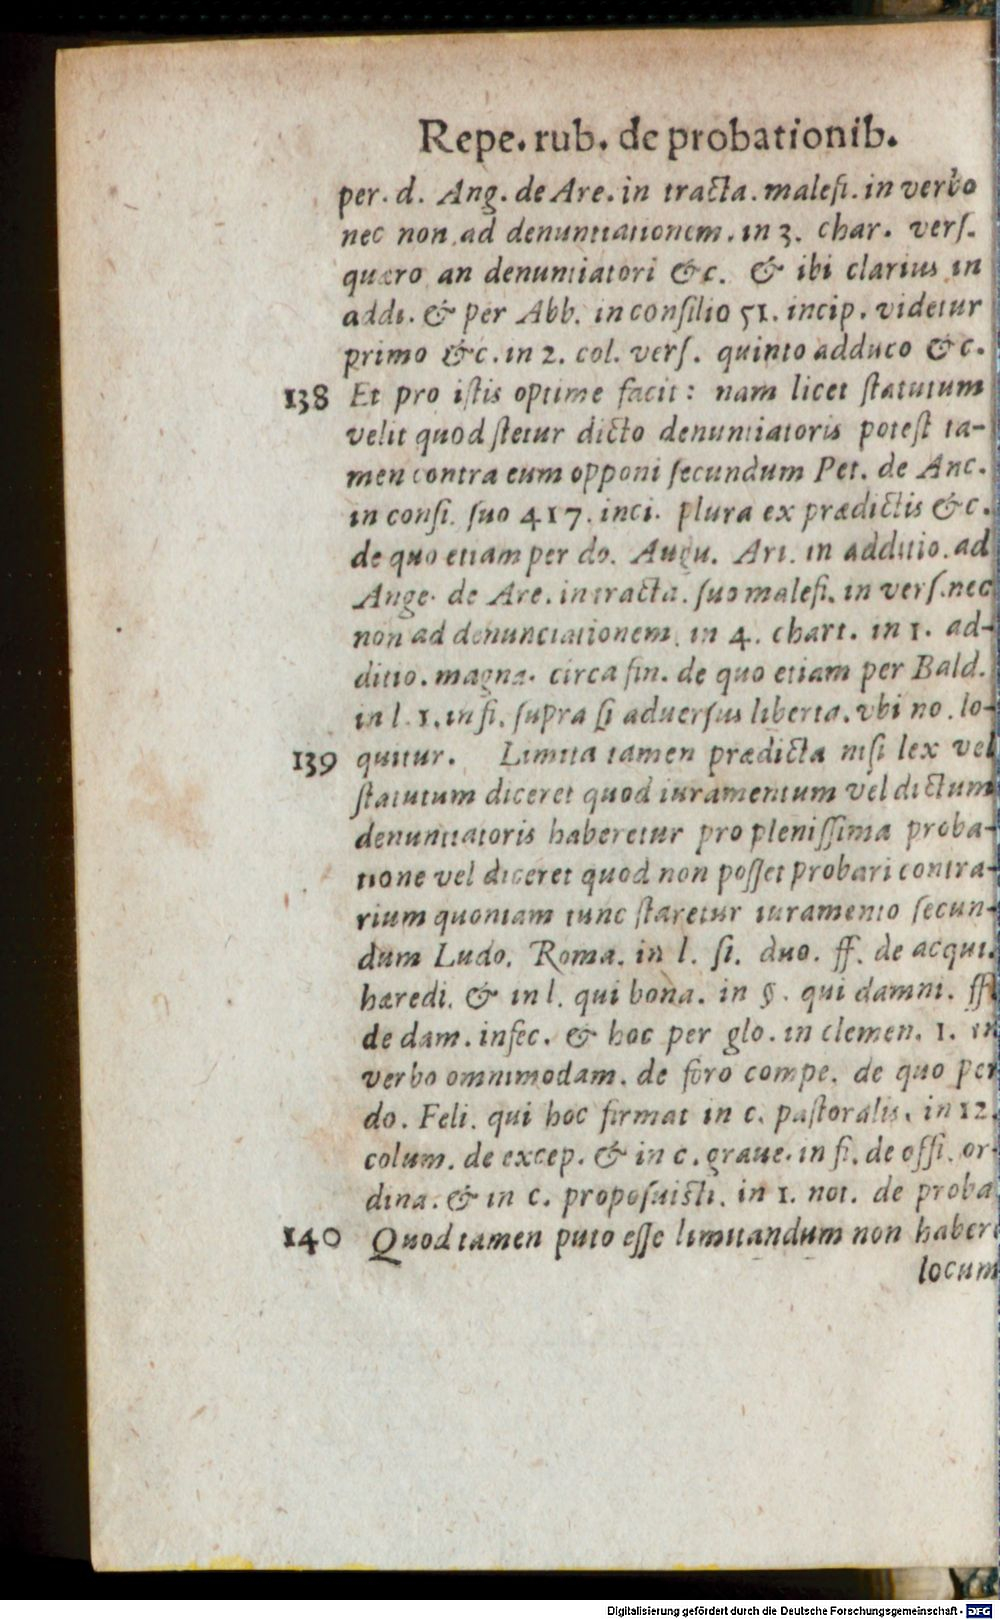 Repe. rub. de probationib.
per. d. Ang. de Are. in tracta. malefi. in verbo
nec non ad denuntiationem. in 3. char. vers.
quæro an denuntiatori &c. & ibi clarius in
addi. & per Abb. in consilio 51. incip. videtur
primo &c. in 2. col. vers. quinto adduco &c.
138 Et pro istis optime facit: nam licet statutum
velit quod stetur dicto denuntiatoris potest ta-
men contra eum opponi secundum Pet. de Anc.
in consi. suo 417. inci. plura ex prædictis &c.
de quo etiam per do. Augu. Ari. in additio. ad
Ange. de Are. in tracta. suo malefi. in vers. nec
non ad denunctationem. in 4. chart. in 1. ad-
ditio. magna. circa fin. de quo etiam per Bald.
in l. 1. in fi. supra si aduersus liberta. vbi no. lo-
139 quitur. Limita tamen prædicta nisi lex vel
statutum diceret quod iuramentum vel dictum
denuntiatoris haberetur pro plenissima proba-
tione vel diceret quod non posset probari contra-
rium quoniam tunc staretur iuramento secun-
dum Ludo. Roma. in l. si. duo. ff. de acqui.
hæredi. & in l. qui bona. in §. qui damni. ff.
de dam. infec. & hoc per glo. in clemen. 1. in
verbo omnimodam. de foro compe. de quo per
do. Feli. qui hoc firmat in c. pastoralis. in 12.
colum. de excep. & in c. graue. in fi. de offi. or-
dina. & in c. proposuisti. in 1. not. de proba
140 Quod tamen puto esse limitandum non haberi
locum
Digitalisierung gefördert durch die Deutsche Forschungsgemeinschaft - DFG